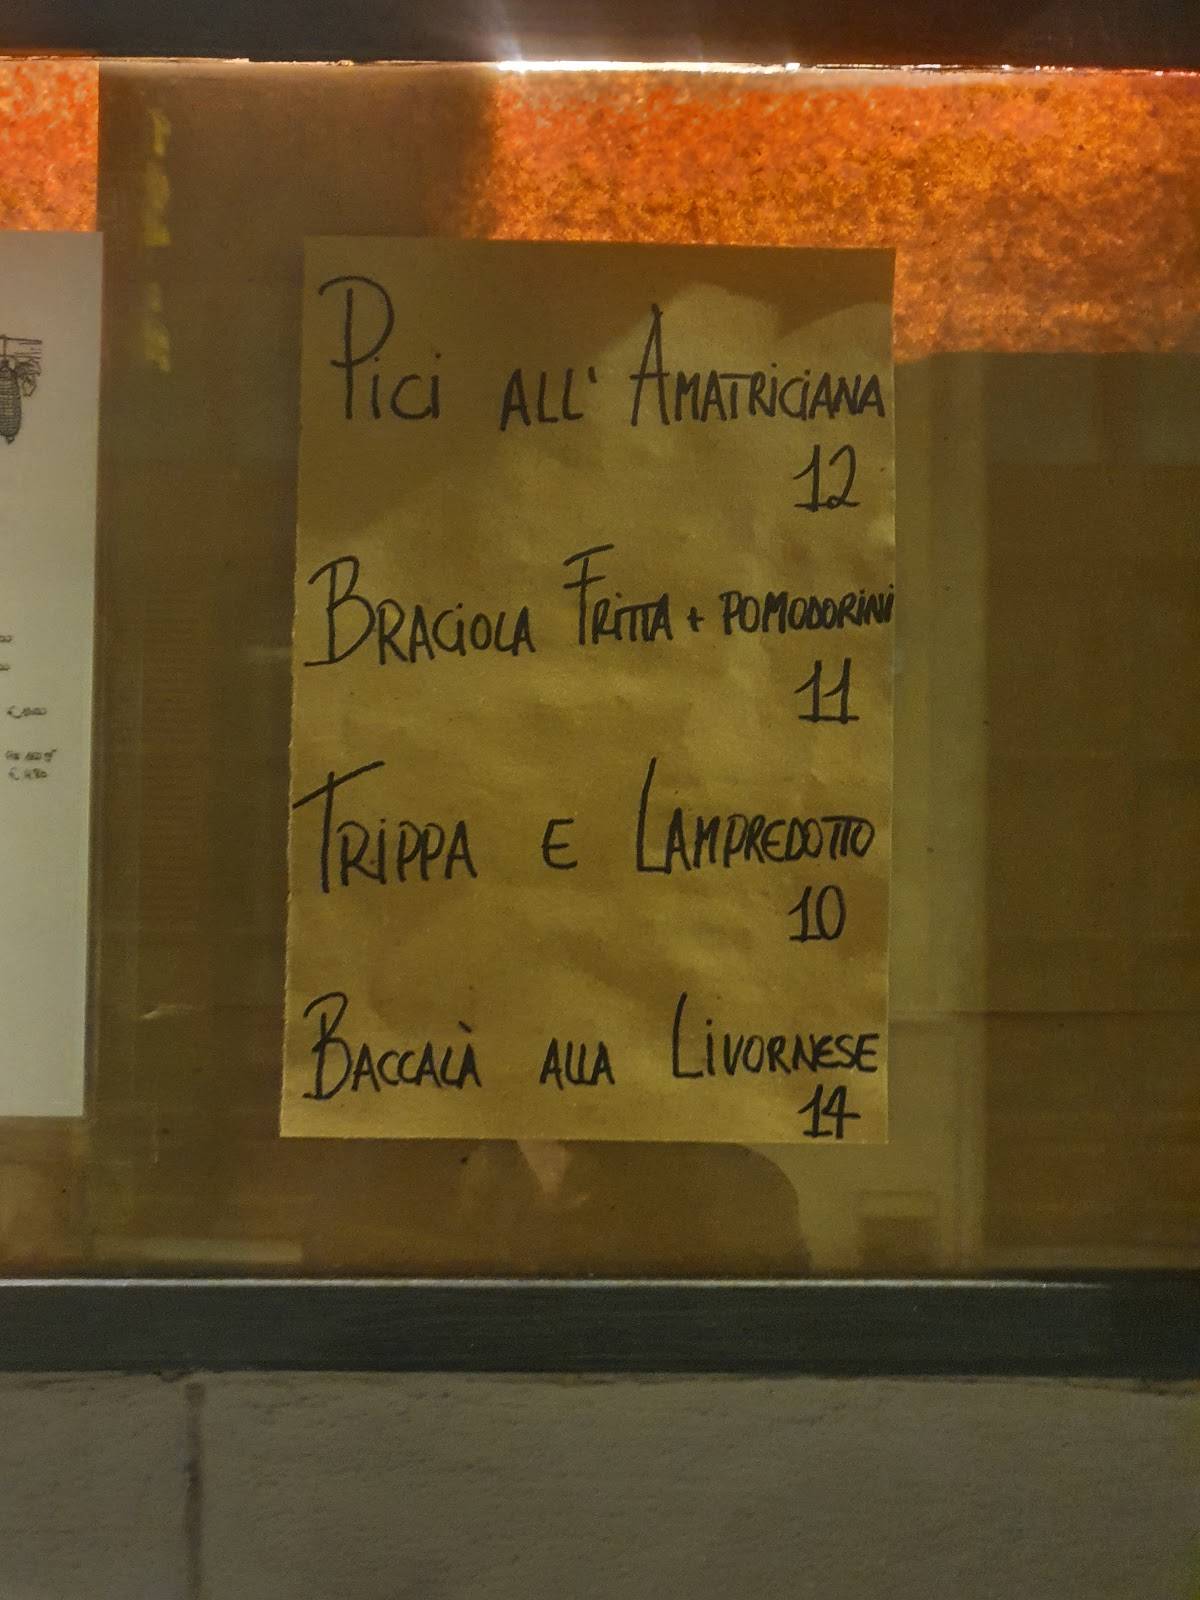 Pici all' Amatriciana
12
Braciola Fritta + pomodorini
11
Trippa e Lampredotto
10
Baccalà alla Livornese
14